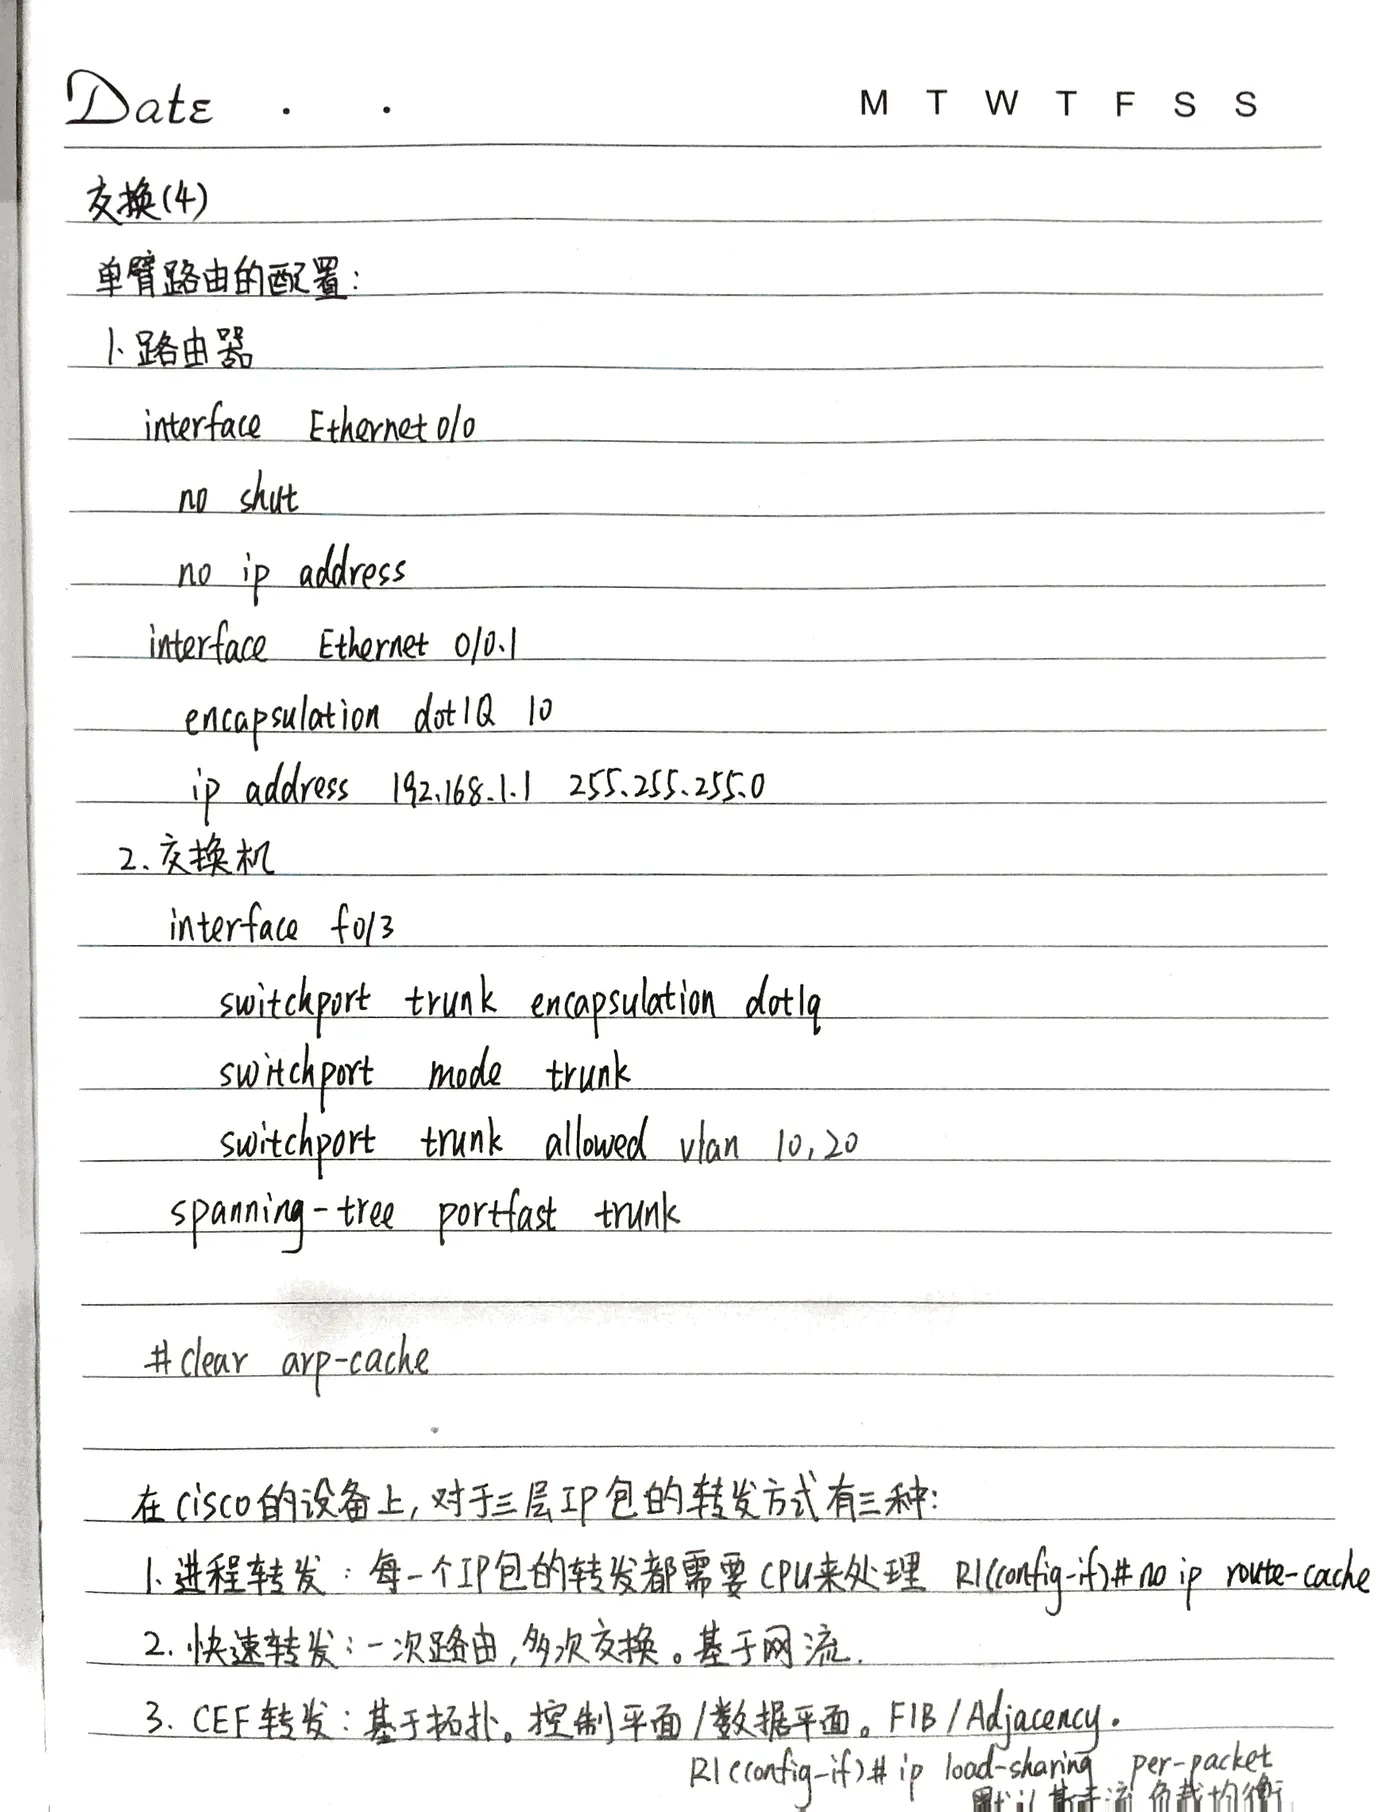 Date . .
M T W T F S S
交换(4)
单臂路由的配置:
1.路由器
interface Ethernet0/0
no shut
no ip address
interface Ethernet 0/0.1
encapsulation dot1Q 10
ip address 192.168.1.1 255.255.255.0
2.交换机
interface f0/3
switchport trunk encapsulation dot1q
switchport mode trunk
switchport trunk allowed vlan 10,20
spanning-tree portfast trunk
#clear arp-cache
在cisco的设备上,对于三层IP包的转发方式有三种:
1.进程转发:每一个IP包的转发都需要CPU来处理 R1(config-if)#no ip route-cache
2.快速转发:一次路由,多次交换。基于网流.
3.CEF转发:基于拓扑。控制平面/数据平面。FIB/Adjacency.
R1(config-if)#ip load-sharing per-packet
默认基于流负载均衡